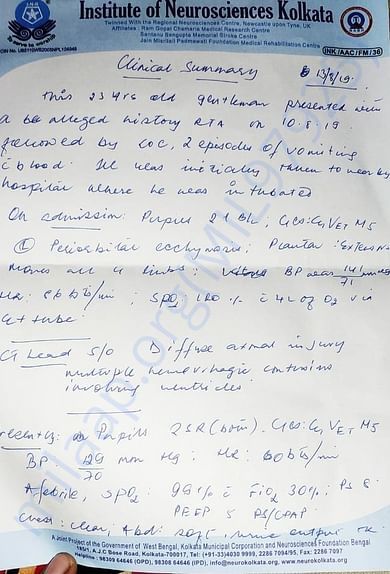 Institute of Neurosciences Kolkata
Twinned With the Regional Neurosciences Centre, Newcastle upon Tyne, UK
Affiliates : Ram Gopal Chamaria Medical Research Centre
Santanu Bengupta Memorial Stroke Centre
Jain Milarilal Padmawati Foundation Medical Rehabilitation Centre
INK/AAC/FM/36
Clinical Summary 13/8/19
This 23 yrs old gentleman presented with
a alleged history RTA on 10.8.19
followed by LOC, 2 episodes of vomiting
c blood. He was initially taken to near by
hospital where he was intubated
On admission: Pupil 2 B/L; GCS: VET M5
(L) Periorbital ecchymosis; Plantar: Extensor
moves all 4 limbs; BP was 141/71
HR: 86 bts/min; SPO2: 100 % c 4L of O2 via
ET tube.
CT Head S/O Diffuse axonal injury
multiple hemorrhagic contusions
involving ventricles
Presently: on Pupils 2SR (both). GCS: VET M5
BP 129/70 mm Hg; HR: 60 bts/min
Afebrile, SPO2: 99% c FiO2 30%; PS 8
PEEP 5 PS/CPAP
Chest: clear, Abd: soft, urine output ok
A Joint Project of the Government of West Bengal, Kolkata Municipal Corporation and Neurosciences Foundation Bengal
185/1, A.J.C Bose Road, Kolkata-700017, Tel: (+91-33)4030 9999, 2286 7094/95, Fax: 2286 7097
Helpline : 98309 64646 (OPD), 98308 64646 (IPD), Website : www.neurokolkata.org
milaap.org